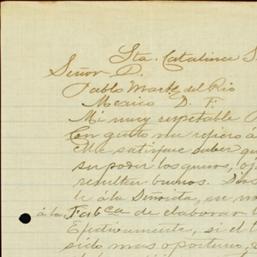 Sta. Catalina S
Señor D.
Pablo Martz del Rio
Mexico D. F.
Mi muy respetable
Con gusto me refiero á
Me satisface saber qu
su poder los quesos, ojá
resulten buenos.
le á la Sinovita, su no
á la Fabca de elaborar
Efectivamente, si el
sido mas oportuno,